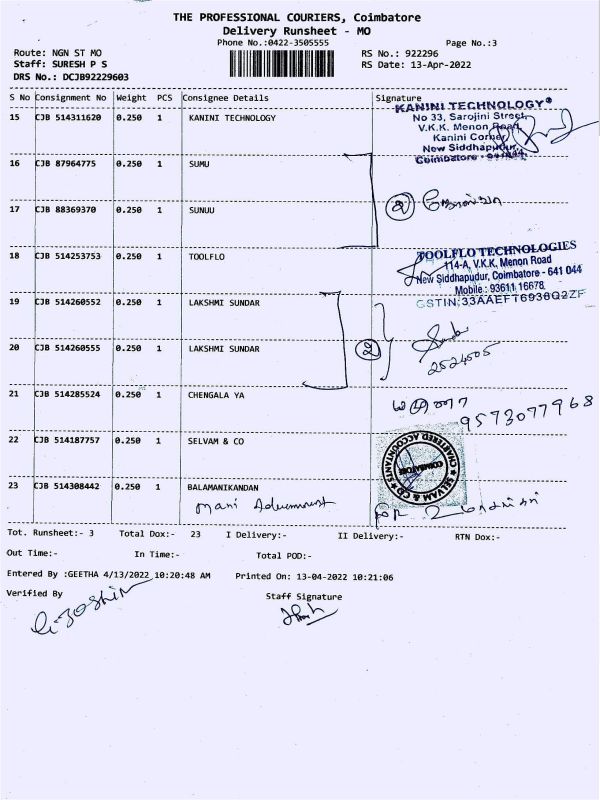 THE PROFESSIONAL COURIERS, Coimbatore
Delivery Runsheet - MO
Phone No.:0422-3505555
Page No.:3
Route: NGN ST MO
RS No.: 922296
Staff: SURESH P S
RS Date: 13-Apr-2022
DRS No.: DCJB92229603
S No Consignment No Weight PCS Consignee Details Signature
15 CJB 514311620 0.250 1 KANINI TECHNOLOGY
KANINI TECHNOLOGY
No 33, Sarojini Street,
V.K.K. Menon Road,
Kanini Corner
New Siddhapudur,
Coimbatore - 641044
16 CJB 87964775 0.250 1 SUMU
2
17 CJB 88369370 0.250 1 SUNUU
18 CJB 514253753 0.250 1 TOOLFLO
TOOLFLO TECHNOLOGIES
114-A, V.K.K. Menon Road
New Siddhapudur, Coimbatore - 641 044
Mobile : 93611 16678
GSTIN:33AAEFT6938Q2ZF
19 CJB 514260552 0.250 1 LAKSHMI SUNDAR
2
20 CJB 514260555 0.250 1 LAKSHMI SUNDAR
2524505
21 CJB 514285524 0.250 1 CHENGALA YA
9573077968
22 CJB 514187757 0.250 1 SELVAM & CO
SELVAM & CO
CHARTERED ACCOUNTANTS
COIMBATORE
23 CJB 514308442 0.250 1 BALAMANIKANDAN
Mani
Tot. Runsheet:- 3 Total Dox:- 23 I Delivery:- II Delivery:- RTN Dox:-
Out Time:- In Time:- Total POD:-
Entered By :GEETHA 4/13/2022 10:20:48 AM Printed On: 13-04-2022 10:21:06
Verified By
Staff Signature